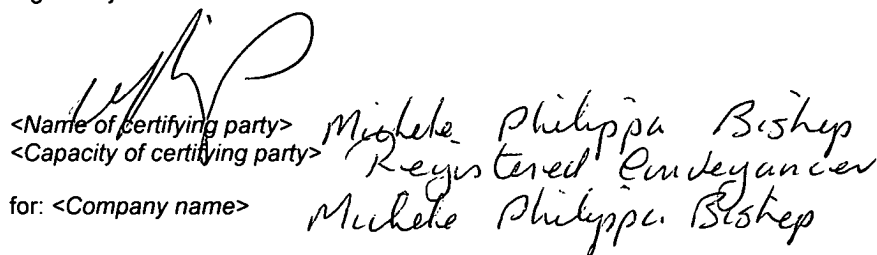 <Name of certifying party> Michele Philippa Bishop
<Capacity of certifying party> Registered Conveyancer
for: <Company name> Michele Philippa Bishop